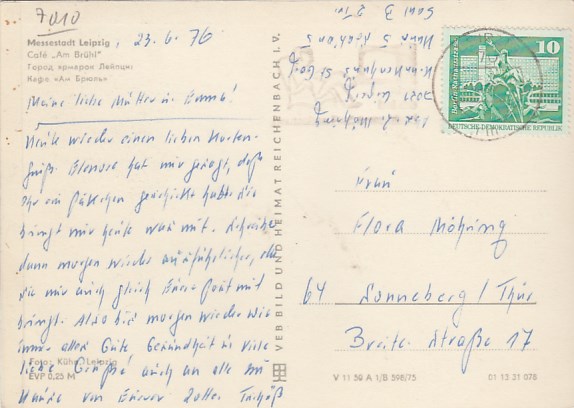 7010
Messestadt Leipzig, 23.6.76
Café „Am Brühl"
Город ярмарок Лейпциг
Кафе „Ам Брюль"
Meine liebe Mutter u. Emma!
Heute wieder einen lieben Karten-
gruß. hat mir gesagt, daß
Ihr ein Päckchen geschickt habt. Sie
bringt mir heute was mit. Schreibe
dann morgen wieder ausführlicher, da
sie mir auch gleich Eure Post mit
bringt. Also bis morgen wieder wie
immer alles Gute Gesundheit u. viele
liebe Grüße auch an alle
von Eurer
Foto: Kühn, Leipzig
EVP 0,25 M
VEB BILD UND HEIMAT REICHENBACH i. V.
Abs. L. Möhring
7021 Leipzig
Haus 5
Saal 3
10
DEUTSCHE DEMOKRATISCHE REPUBLIK
Frau
Flora Möhring
64 Sonneberg / Thür
Breite Straße 17
V 11 50 A 1/B 598/75
01 13 31 078